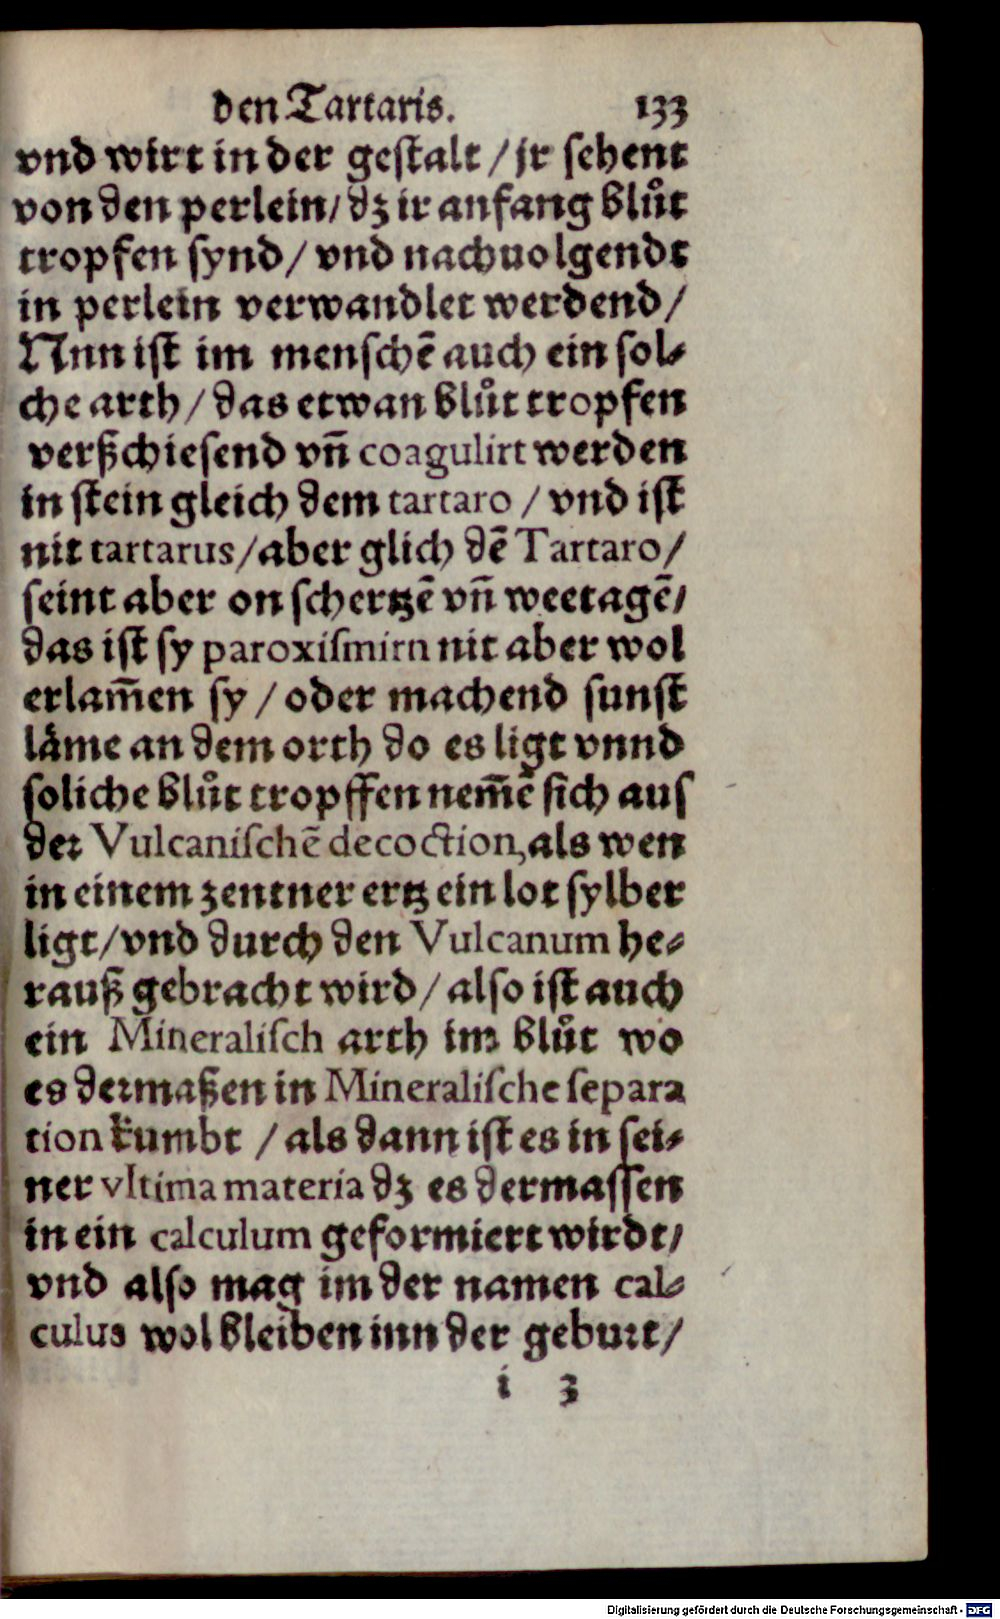 den Tartaris. 133
vnd wirt in der gestalt / jr sehent
von den perlein / dz ir anfang blůt
tropfen synd / vnd nachuolgendt
in perlein verwandlet werdend /
Nnn ist im menschē auch ein sol⸗
che arth / das etwan blůt tropfen
verßchiesend vn̄ coagulirt werden
in stein gleich dem tartaro / vnd ist
nit tartarus / aber glich dē Tartaro /
seint aber on schertzē vn̄ weetagē /
das ist sy paroxismirn nit aber wol
erlam̄en sy / oder machend sunst
läme an dem orth do es ligt vnnd
soliche blůt tropffen nem̄ē sich aus
der Vulcanischē decoction, als wen
in einem zentner ertz ein lot sylber
ligt / vnd durch den Vulcanum he⸗
rauß gebracht wird / also ist auch
ein Mineralisch arth im blůt wo
es dermaßen in Mineralische separa
tion kumbt / als dann ist es in sei⸗
ner vltima materia dz es dermassen
in ein calculum geformiert wirdt /
vnd also mag im der namen cal⸗
culus wol bleiben inn der geburt /
i 3
Digitalisierung gefördert durch die Deutsche Forschungsgemeinschaft - DFG